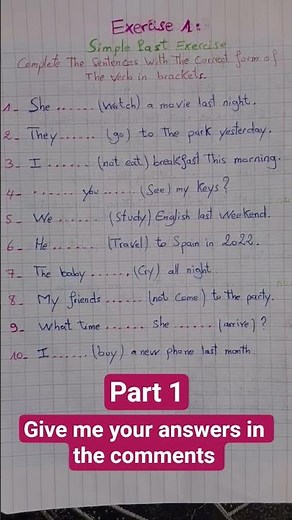 Exercise 1:
Simple Past Exercise
Complete The Sentences With The Correct form of
The verb in brackets.
1- She ...... (Watch) a movie last night.
2- They ...... (go) to The park yesterday.
3- I ...... (not eat) breakfast This morning.
4- ...... you ...... (See) my Keys?
5- We ...... (Study) English last Weekend.
6- He ...... (Travel) to Spain in 2022.
7- The baby ...... (Cry) all night.
8- My friends ...... (not Come) to The party.
9- What time ...... She ...... (arrive)?
10- I ...... (buy) a new phone last month
Part 1
Give me your answers in
the comments